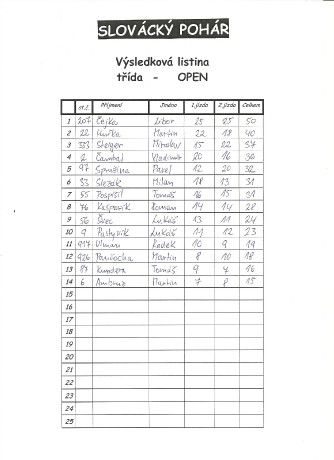 SLOVÁCKÝ POHÁR
Výsledková listina
třída - OPEN
st.č. Příjmení Jméno 1.jízda 2.jízda Celkem
1 207 Čejka Libor 25 25 50
2 22 Martin 22 18 40
3 333 Steiger Miroslav 15 22 37
4 2 Vladimír 20 16 36
5 97 Spružina Pavel 12 20 32
6 33 Slezák Milan 18 13 31
7 55 Pospíšil Tomáš 16 15 31
8 76 Kašpařík Roman 14 14 28
9 56 Švec Lukáš 13 11 24
10 9 Lukáš 11 12 23
11 917 Ulman Radek 10 9 19
12 926 Martin 8 10 18
13 87 Kundera Tomáš 9 7 16
14 6 Ambruz Martin 7 8 15
15
16
17
18
19
20
21
22
23
24
25